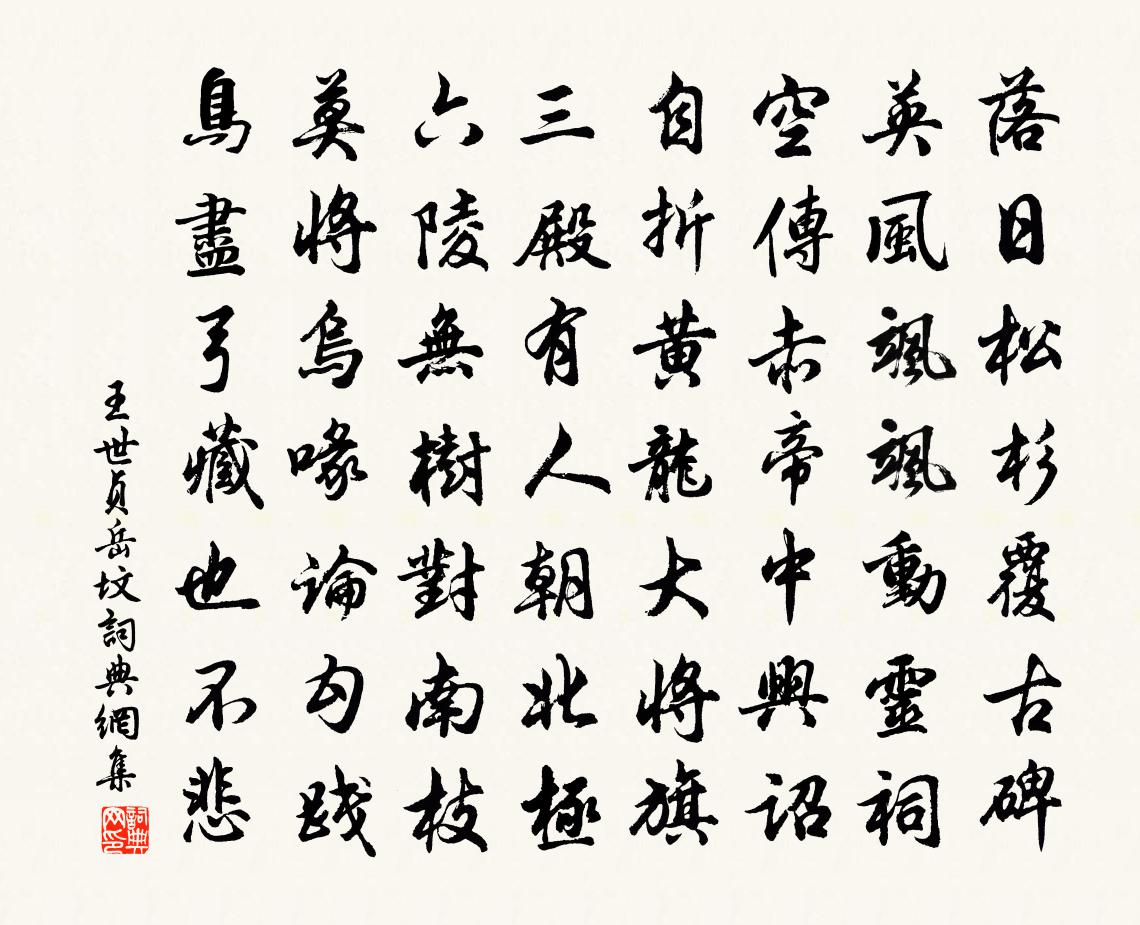 落日松杉覆古碑
英風颯颯動靈祠
空傳赤帝中興詔
自折黃龍大將旗
三殿有人朝北極
六陵無樹對南枝
莫將烏喙論勾踐
鳥盡弓藏也不悲
王世貞岳坟詞典網集
詞典网印